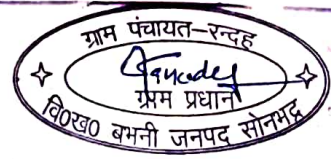 ग्राम पंचायत–रन्दह
ग्राम प्रधान
वि०ख० बभनी जनपद सोनभद्र